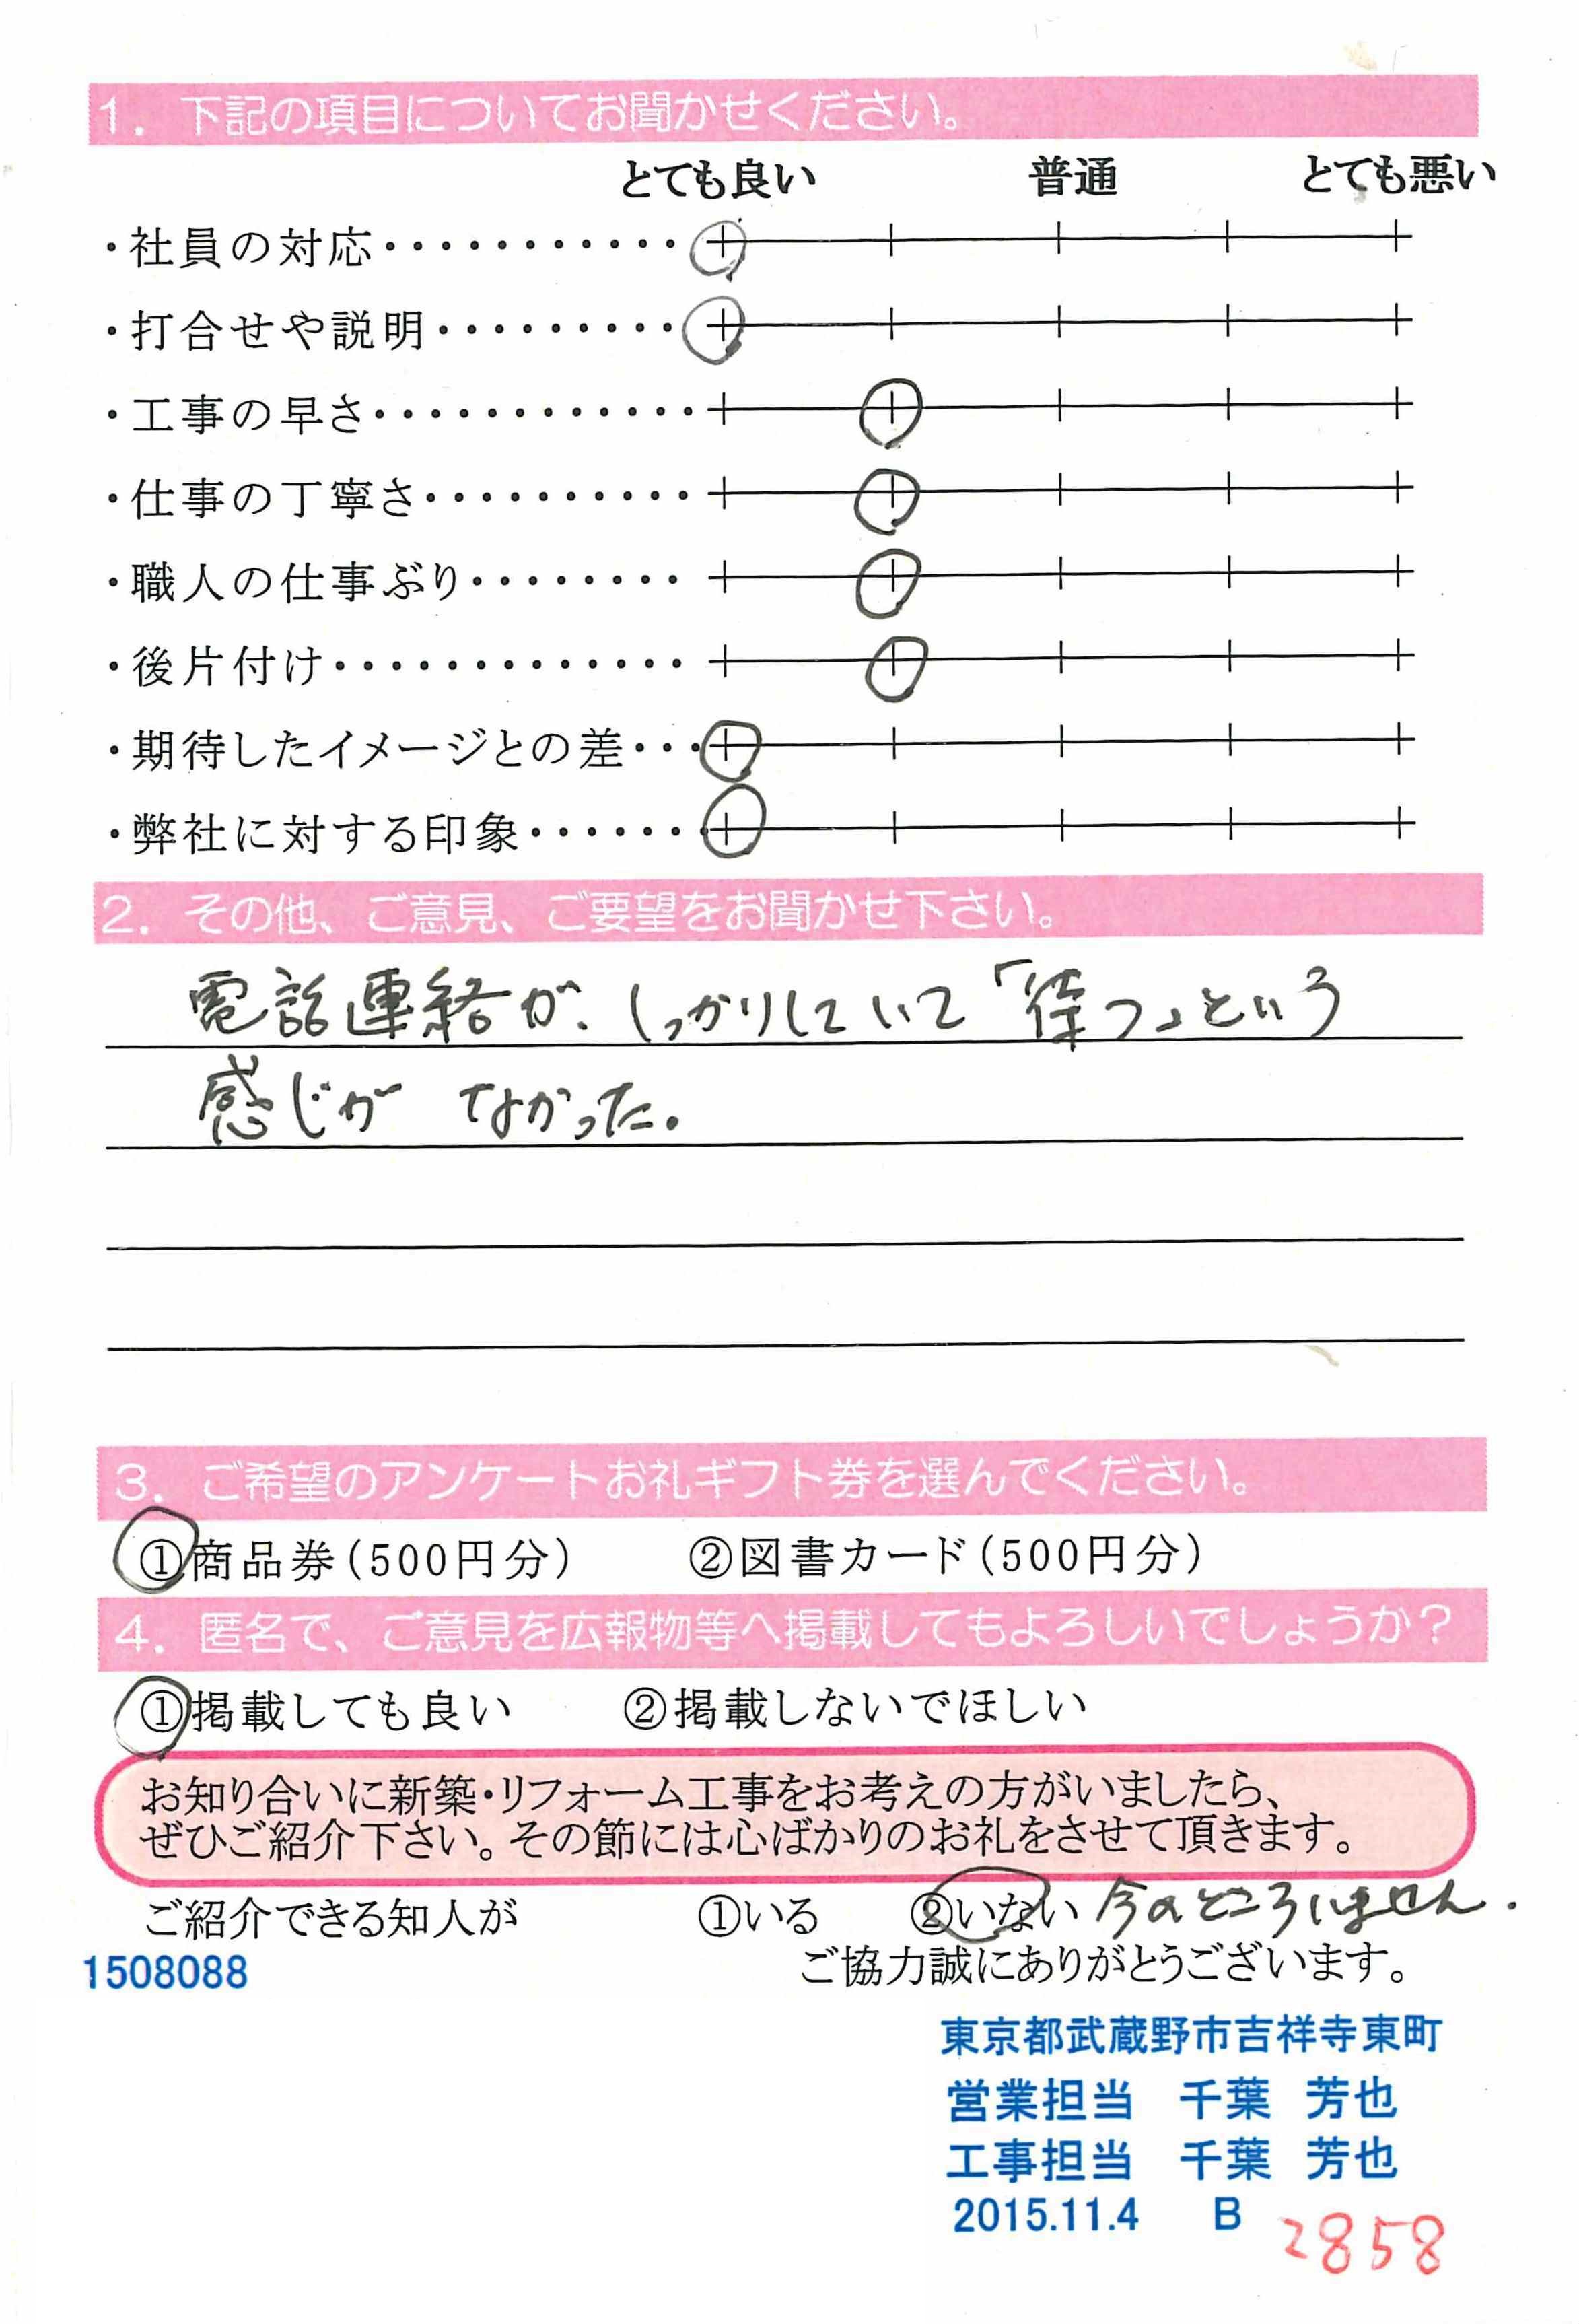 1. 下記の項目についてお聞かせください。
とても良い 普通 とても悪い
・社員の対応・・・・・・・・・・・
・打合せや説明・・・・・・・・・
・工事の早さ・・・・・・・・・・・・
・仕事の丁寧さ・・・・・・・・・・
・職人の仕事ぶり・・・・・・・・
・後片付け・・・・・・・・・・・・・
・期待したイメージとの差・・・
・弊社に対する印象・・・・・・
2. その他、ご意見、ご要望をお聞かせ下さい。
電話連絡が、しっかりしていて「待つ」という
感じが なかった。
3. ご希望のアンケートお礼ギフト券を選んでください。
①商品券(500円分) ②図書カード(500円分)
4. 匿名で、ご意見を広報物等へ掲載してもよろしいでしょうか?
①掲載しても良い ②掲載しないでほしい
お知り合いに新築・リフォーム工事をお考えの方がいましたら、
ぜひご紹介下さい。その節には心ばかりのお礼をさせて頂きます。
ご紹介できる知人が ①いる ②いない 今のところいません.
1508088 ご協力誠にありがとうございます。
東京都武蔵野市吉祥寺東町
営業担当 千葉 芳也
工事担当 千葉 芳也
2015.11.4 B 2858